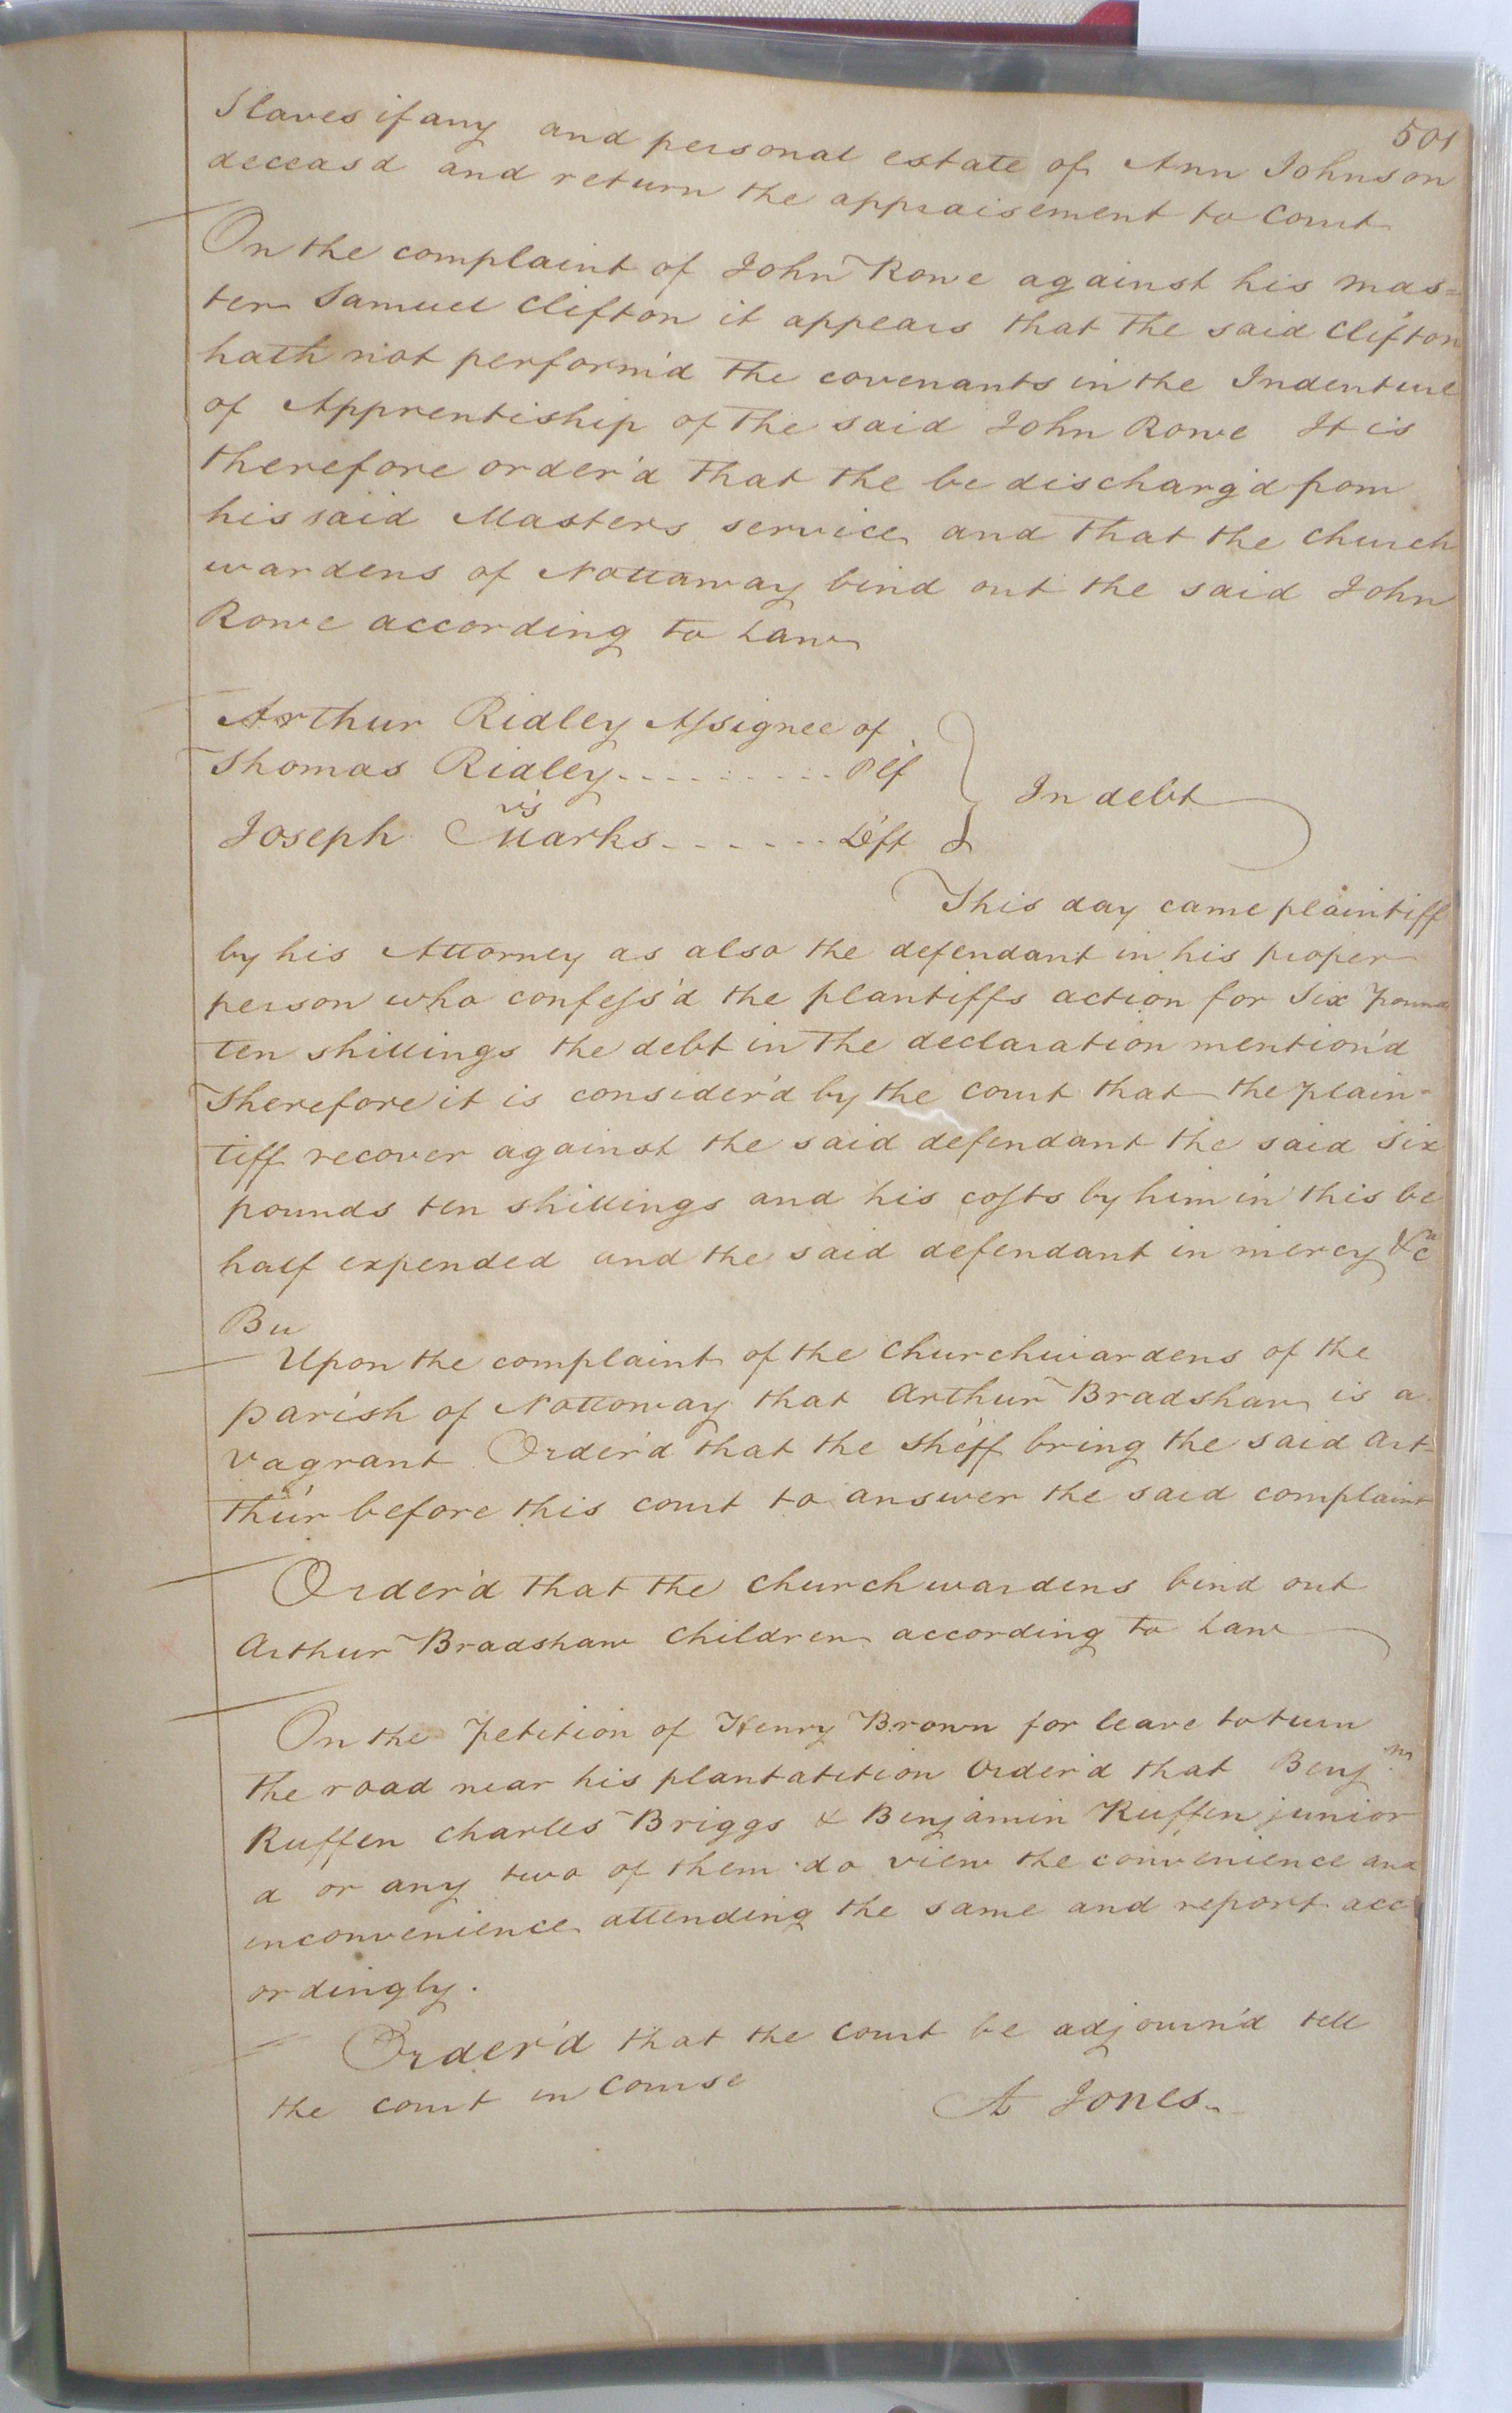 501
Slaves if any and personal estate of Ann Johnson
deceasd and return the appraisement to Court
On the complaint of John Rowe against his mas=
ter Samuel Clifton it appears that the said Clifton
hath not perform'd the covenants in the Indenture
of Apprentiship of the said John Rowe It is
therefore order'd that the be discharg'd from
his said Masters service and that the church
wardens of Nottaway bind out the said John
Rowe according to Law
Arthur Ridley Assignee of
Thomas Ridley.......... Plf
vs
Joseph Marks....... Deft
In debt
This day came plaintiff
by his Attorney as also the defendant in his proper
person who confess'd the plantiffs action for Six pounds
ten shillings the debt in the declaration mention'd
Therefore it is consider'd by the court that the plain-
tiff recover against the said defendant the said six
pounds ten shillings and his costs by him in this be
half expended and the said defendant in mercy &c
Bu
Upon the complaint of the Churchwardens of the
parish of Nottoway that Arthur Bradshaw is a
vagrant Order'd that the Sheff bring the said Art-
thur before this court to answer the said complaint
Order'd that the Churchwardens bind out
Arthur Bradshaw Children according to Law
On the petition of Henry Brown for leave to turn
the road near his plantatition Order'd that Benj.m
Ruffen Charles Briggs & Benjamin Ruffen junior
a or any two of them do view the convenience and
inconvenience attending the same and report acc
ordingly.
Order'd that the court be adjourn'd till
the court in Course
A Jones